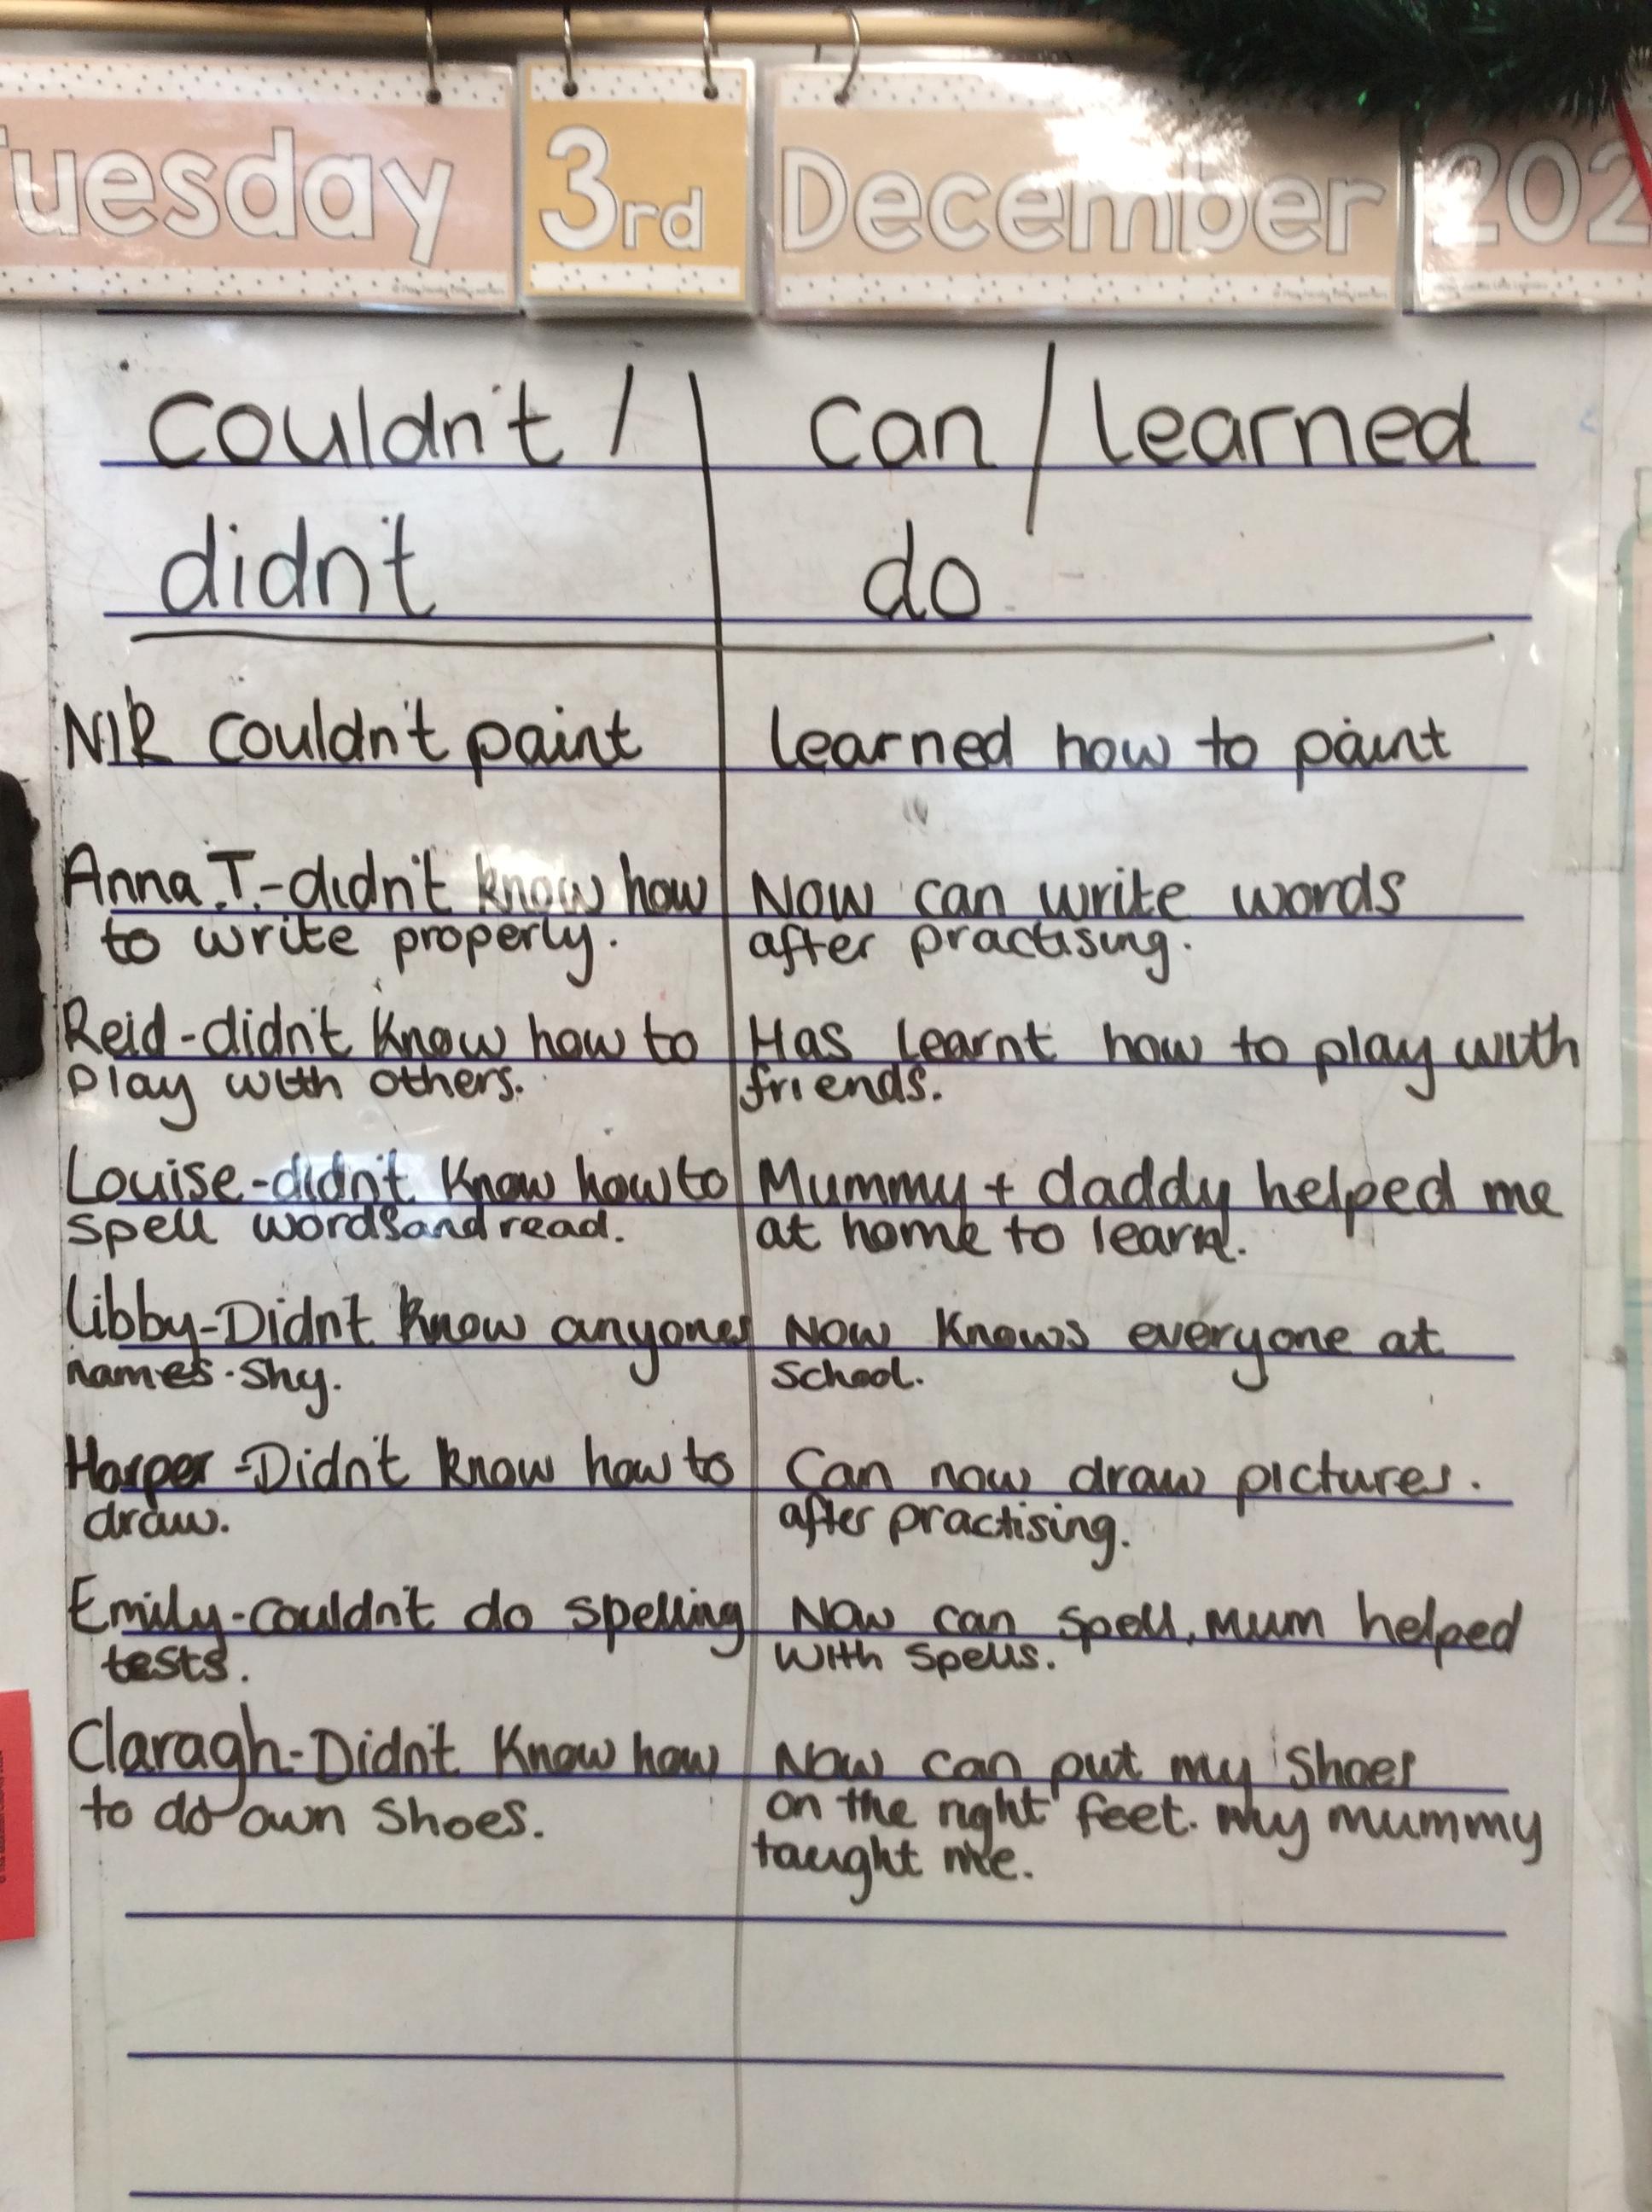 Tuesday 3rd December 202
couldn't / can / learned
didn't do
NIR couldn't paint
learned how to paint
Anna.T.-didn't know how
to write properly.
Now can write words
after practising.
Reid-didn't know how to
play with others.
Has learnt how to play with
friends.
Louise-didn't know how to
spell words and read.
Mummy + daddy helped me
at home to learn.
Libby-Didn't know anyones
names. Shy.
Now knows everyone at
School.
Harper-Didn't know how to
draw.
Can now draw pictures.
after practising.
Emily-couldn't do spelling
tests.
Now can spell, Mum helped
with spells.
Claragh-Didn't know how
to do own shoes.
Now can put my shoes
on the right feet. my mummy
taught me.